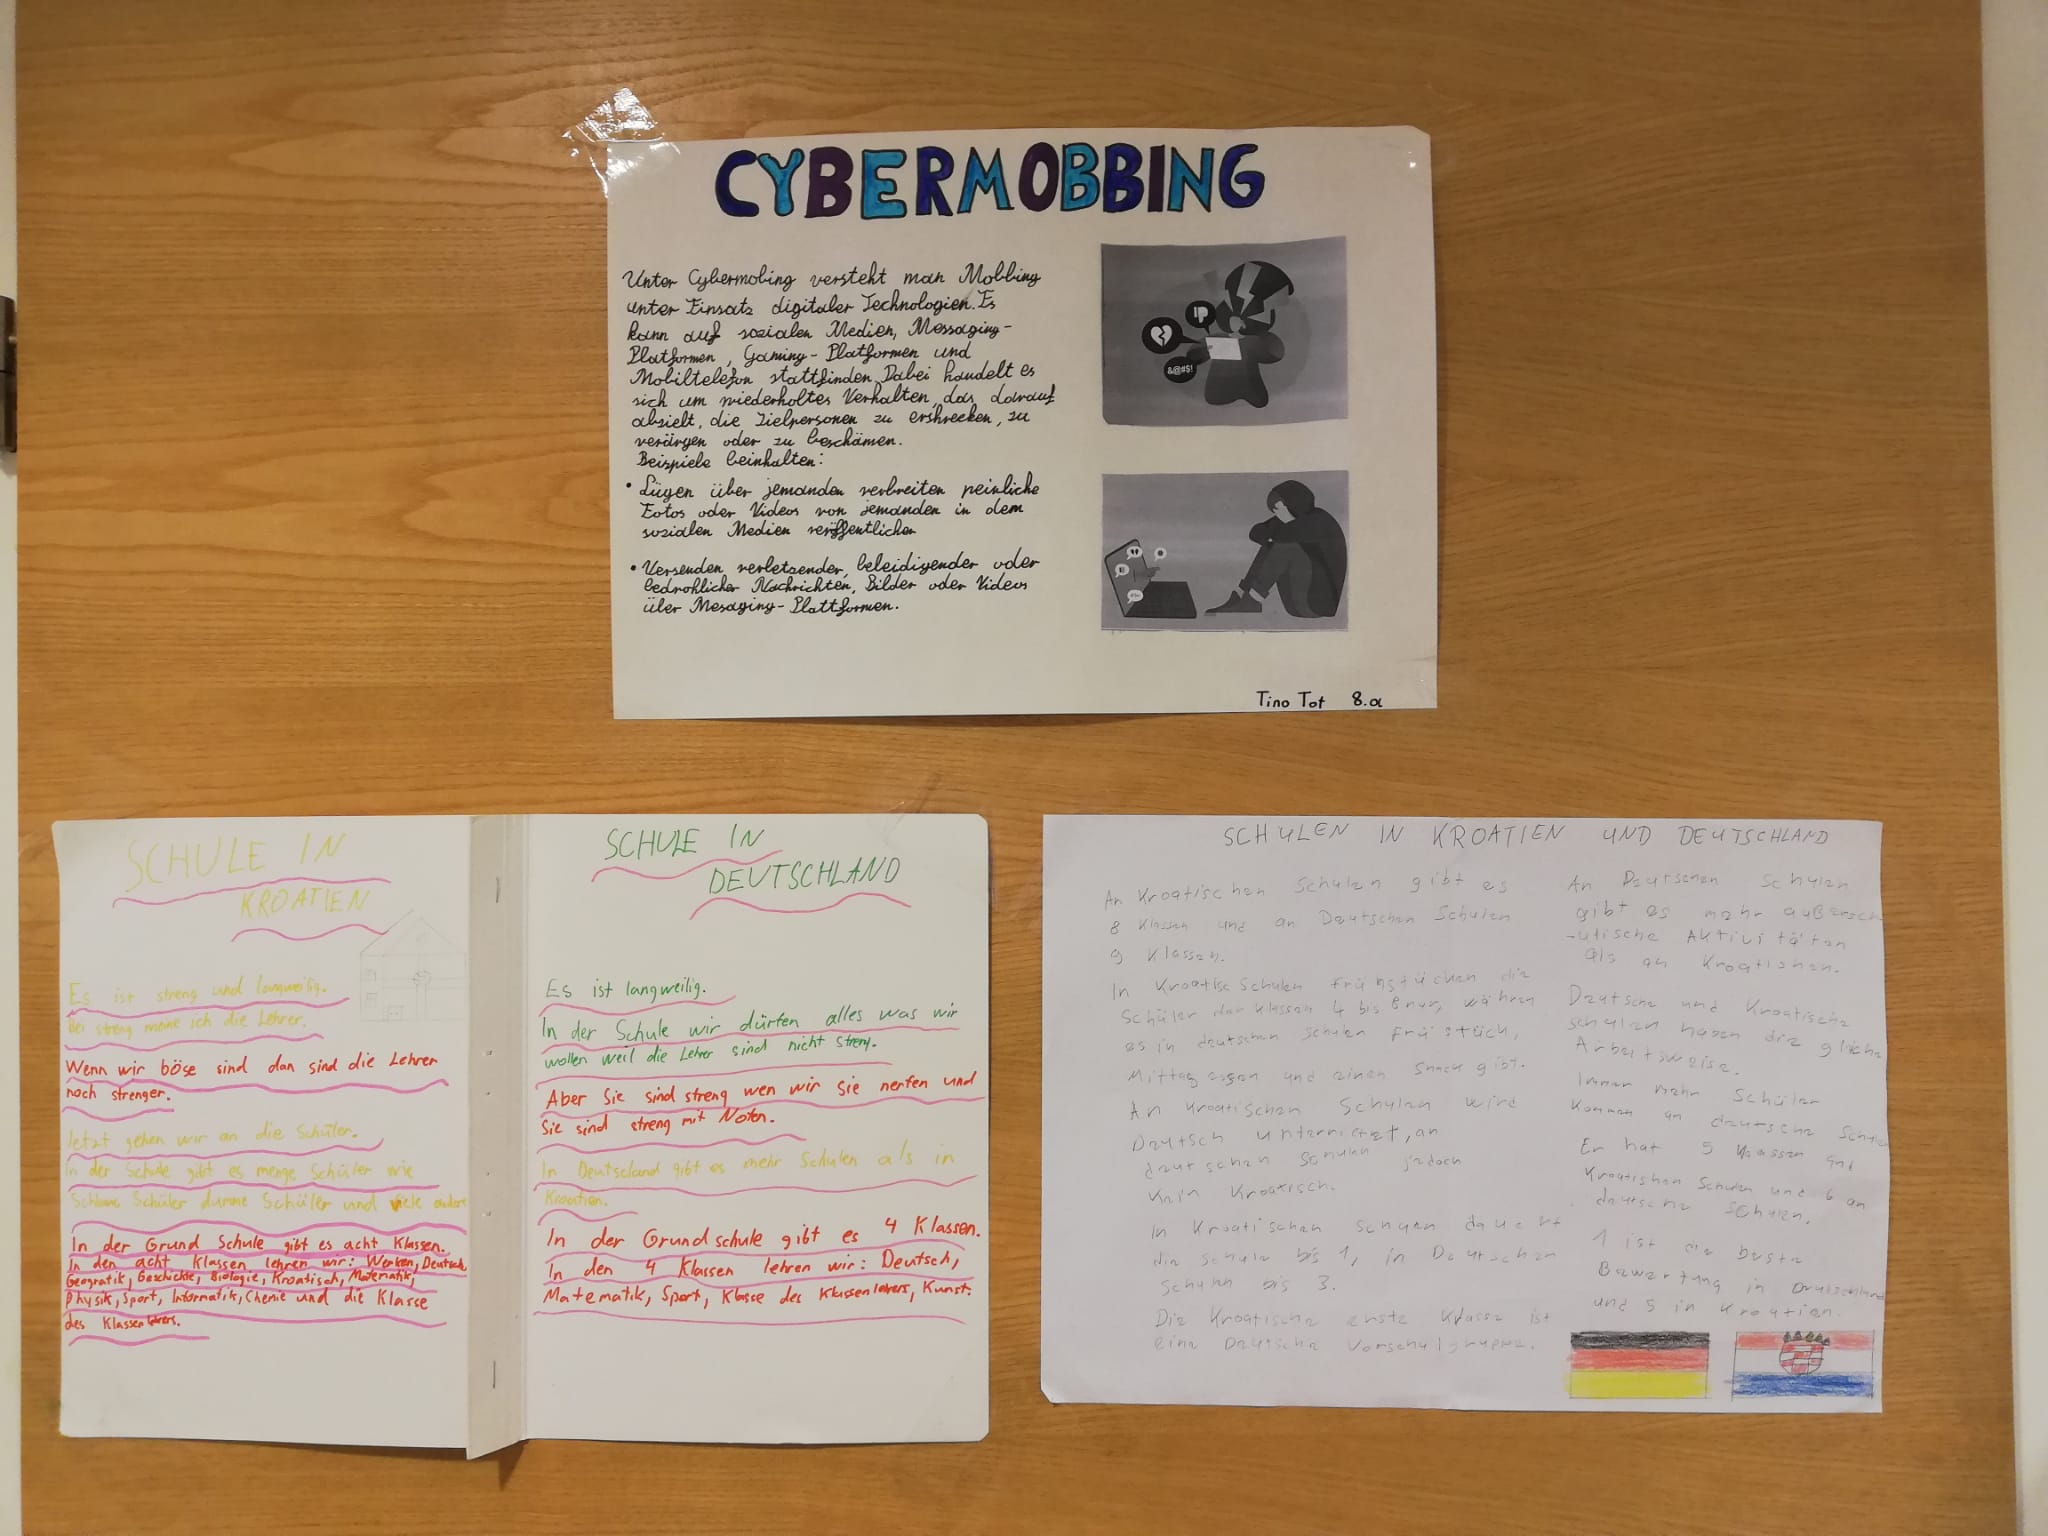 CYBERMOBBING
Unter Cybermobing versteht man Mobbing
unter Einsatz digitaler Technologien. Es
kann auf sozialen Medien, Messaging-
Platformen, Gaming-Platformen und
Mobiltelefon stattfinden. Dabei handelt es
sich um wiederholtes Verhalten, das darauf
abzielt, die Zielpersonen zu ershrecken, zu
verärgen oder zu beschämen.
Beispiele beinhalten:
• Lügen über jemanden verbreiten peinliche
Fotos oder Videos von jemanden in dem
sozialen Medien veröffentlichen
• Versenden verletzender, beleidigender oder
bedrohlicher Nachrichten, Bilder oder Videos
über Mesaging-Plattformen.
&@#$!
Tino Tot 8.a
SCHULE IN
KROATIEN
Es ist streng und langweilig.
Bei streng meine ich die Lehrer.
Wenn wir böse sind dan sind die Lehrer
noch strenger.
Jetzt gehen wir an die Schüler.
In der Schule gibt es menge Schüler wie
Schlaue Schüler dumme Schüler und viele andere
In der Grund Schule gibt es acht Klassen.
In den acht Klassen lehren wir: Werken, Deutsch,
Geografik, Geschichte, Biologie, Kroatisch, Matematik,
Physik, Sport, Informatik, Chemie und die Klasse
des Klassenlehrers.
SCHULE IN
DEUTSCHLAND
Es ist langweilig.
In der Schule wir dürfen alles was wir
wollen weil die Lehrer sind nicht streng.
Aber Sie sind streng wen wir sie nerfen und
Sie sind streng mit Noten.
In Deutscland gibt es mehr Schulen als in
Kroatien.
In der Grundschule gibt es 4 Klassen.
In den 4 Klassen lehren wir: Deutsch,
Matematik, Sport, Klasse des Klassenlehrers, Kunst.
SCHULEN IN KROATIEN UND DEUTSCHLAND
An Kroatischen Schulen gibt es
8 Klassen und an Deutschen Schulen
9 Klassen.
In Kroatisc Schulen frühstücken die
Schüler der Klassen 4 bis 8 nur, währen
es in deutschen schulen Früstück,
Mittagessen und einen Snack gibt.
An Kroatischen Schulen wird
Deutsch unterrictet, an
deutschen Schulen jedoch
Kein Kroatisch.
In Kroatischen Schulen dauert
die schule bis 1, in Deutschen
Schulen bis 3.
Die Kroatische erste Klasse ist
eine Deutsche Vorschulgruppe.
An Deutschen Schulen
gibt es mehr außersch
-ulische Aktivitäten
als an Kroatishen.
Deutsche und Kroatische
schulen haben die gleiche
Arbeitsweise.
Immer mehr Schüler
kommen an deutsche Schulen
Er hat 5 Klassen
Kroatishen Schulen und 6 an
deutsche Schulen.
1 ist die beste
Bewertung in Deutschland
und 5 in Kroatien.